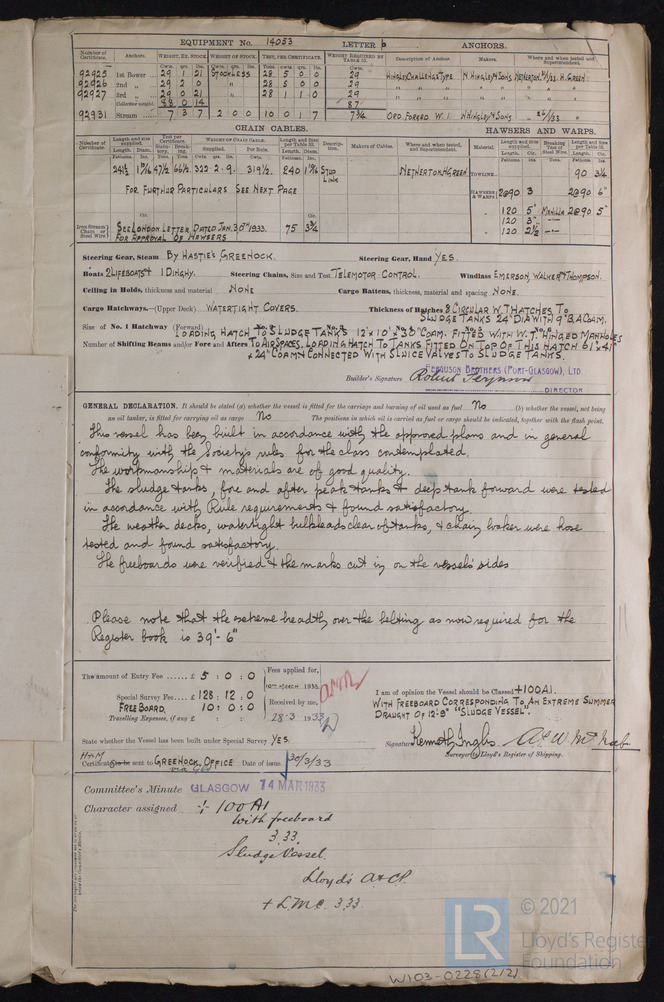 EQUIPMENT No. 14053 LETTER b ANCHORS.
Number of Certificate. Anchors. WEIGHT, EX. STOCK. WEIGHT OF STOCK. TEST, PER CERTIFICATE. WEIGHT REQUIRED BY TABLE 31. Description of Anchor. Makers. Where and when tested and Superintendent.
Cwts. qrs. lbs. Cwts. qrs. lbs. Tons. cwts. qrs. lbs. Cwts.
92925 1st Bower ... 29 1 21 STOCKLESS 28 5 0 0 29 HINGLEY CHALLENGE TYPE N. HINGLEY & SONS NETHERTON H. GREEN.
92926 2nd „ 29 2 0 „ 28 5 0 0 29 „ „ „ „ „
92927 3rd „ 29 0 21 „ 28 1 1 0 29 „ „ „ „ „
Collective weight. 88 0 14 87
92931 Stream ...... 7 3 7 2 0 0 10 0 1 7 7¾ ORD. FORGED W.I. N HINGLEY & SONS „ /33 „
CHAIN CABLES. HAWSERS AND WARPS.
Number of Certificate. Length and size supplied. Test per Certificate. WEIGHT OF CHAIN TABLE. Length and Size per Table 31. Description. Makers of Cables. Where and when tested, and Superintendent. Material Length and size supplied. Breaking Test of Steel Wire. Length and size per Table 31.
Length. Diam. Statutory. Breaking. Supplied. Per Rule. Length. Diam. Length. Cir. Length Cir.
Fathoms. Ins. Tons. Tons. Cwts. qrs. lbs. Cwts. Fathoms. Ins. Fathoms Ins. Tons. Fathoms Ins.
241½ 1 9/16 47½ 66½ 322 . 2 . 9. 319½. 240 1 9/16 STUD LINK NETHERTON H GREEN TOWLINE 90 3¼
FOR FURTHUR PARTICULARS SEE NEXT PAGE HAWSERS & WARPS 2@90 3 2@90 6"
„ 120 5" MANILLA 2@90 5"
Iron Stream Chain or Steel Wire SEE LONDON LETTER, DATED JAN. 30TH 1933. 75 3¾ „ 120 3"
FOR APPROVAL OF HAWSERS „ 120 2½
Steering Gear, Steam BY HASTIE'S GREENOCK. Steering Gear, Hand YES.
Boats 2 LIFEBOATS & 1 DINGHY. Steering Chains, Size and Test TELEMOTOR CONTROL. Windlass EMERSON, WALKER & THOMPSON.
Ceiling in Holds, thickness and material NONE Cargo Battens, thickness, material and spacing NONE.
Cargo Hatchways.—(Upper Deck) WATERTIGHT COVERS. Thickness of Hatches 8 CIRCULAR W. T. HATCHES TO
SLUDGE TANKS 24" DIA WITH 9" B.A COAM.
Size of No. 1 Hatchway (Forward) LOADING HATCH TO SLUDGE TANKS 12' x 10' x 38" COAM. FITTED WITH W. T. HINGED MANHOLES
Number of Shifting Beams and/or Fore and Afters TO AIRSPACES. LOADING HATCH TO TANKS FITTED ON TOP OF THIS HATCH 61" x 41"
x 24" COAMN CONNECTED WITH SLUICE VALVES TO SLUDGE TANKS.
FERGUSON BROTHERS (PORT-GLASGOW), LTD
Builder's Signature Robert Ferguson
DIRECTOR
GENERAL DECLARATION. It should be stated (a) whether the vessel is fitted for the carriage and burning of oil used as fuel No (b) whether the vessel, not being
an oil tanker, is fitted for carrying oil as cargo No The positions in which oil is carried as fuel or cargo should be indicated, together with the flash point.
This vessel has been built in accordance with the approved plans and in general
conformity with the Society's rules for the class contemplated.
The workmanship & materials are of good quality.
The sludge tanks, fore and after peak tanks & deep tank forward were tested
in accordance with Rule requirements & found satisfactory.
The weather decks, watertight bulkheads clear of tanks, & chain locker were hose
tested and found satisfactory.
The freeboards were verified & the marks cut in on the vessel's sides
Please note that the extreme breadth over the belting as now required for the
Register book is 39'- 6"
The amount of Entry Fee ...... £ 5 : 0 : 0 Fees applied for,
10TH MARCH 1933
Special Survey Fee.... £ 128 : 12 : 0
FREEBOARD. 10 : 0 : 0 Received by me,
Travelling Expenses, if any £ : : 28-3 1933
I am of opinion the Vessel should be Classed +100A1.
WITH FREEBOARD CORRESPONDING TO AN EXTREME SUMMER
DRAUGHT OF 12'-9" "SLUDGE VESSEL".
State whether the Vessel has been built under Special Survey YES.
Signature Kenneth Inglis
Surveyor to Lloyd's Register of Shipping.
H+M
Certificate to be sent to GREENOCK OFFICE Date of issue 30/3/33
Committee's Minute GLASGOW 14 MAR 1933
Character assigned + 100A1
With freeboard
3.33.
Sludge Vessel.
Lloyd's A & CP.
+ L.M.C. 3.33.
LR
© 2021
Lloyd's Register
Foundation
W103-0228(2/2)